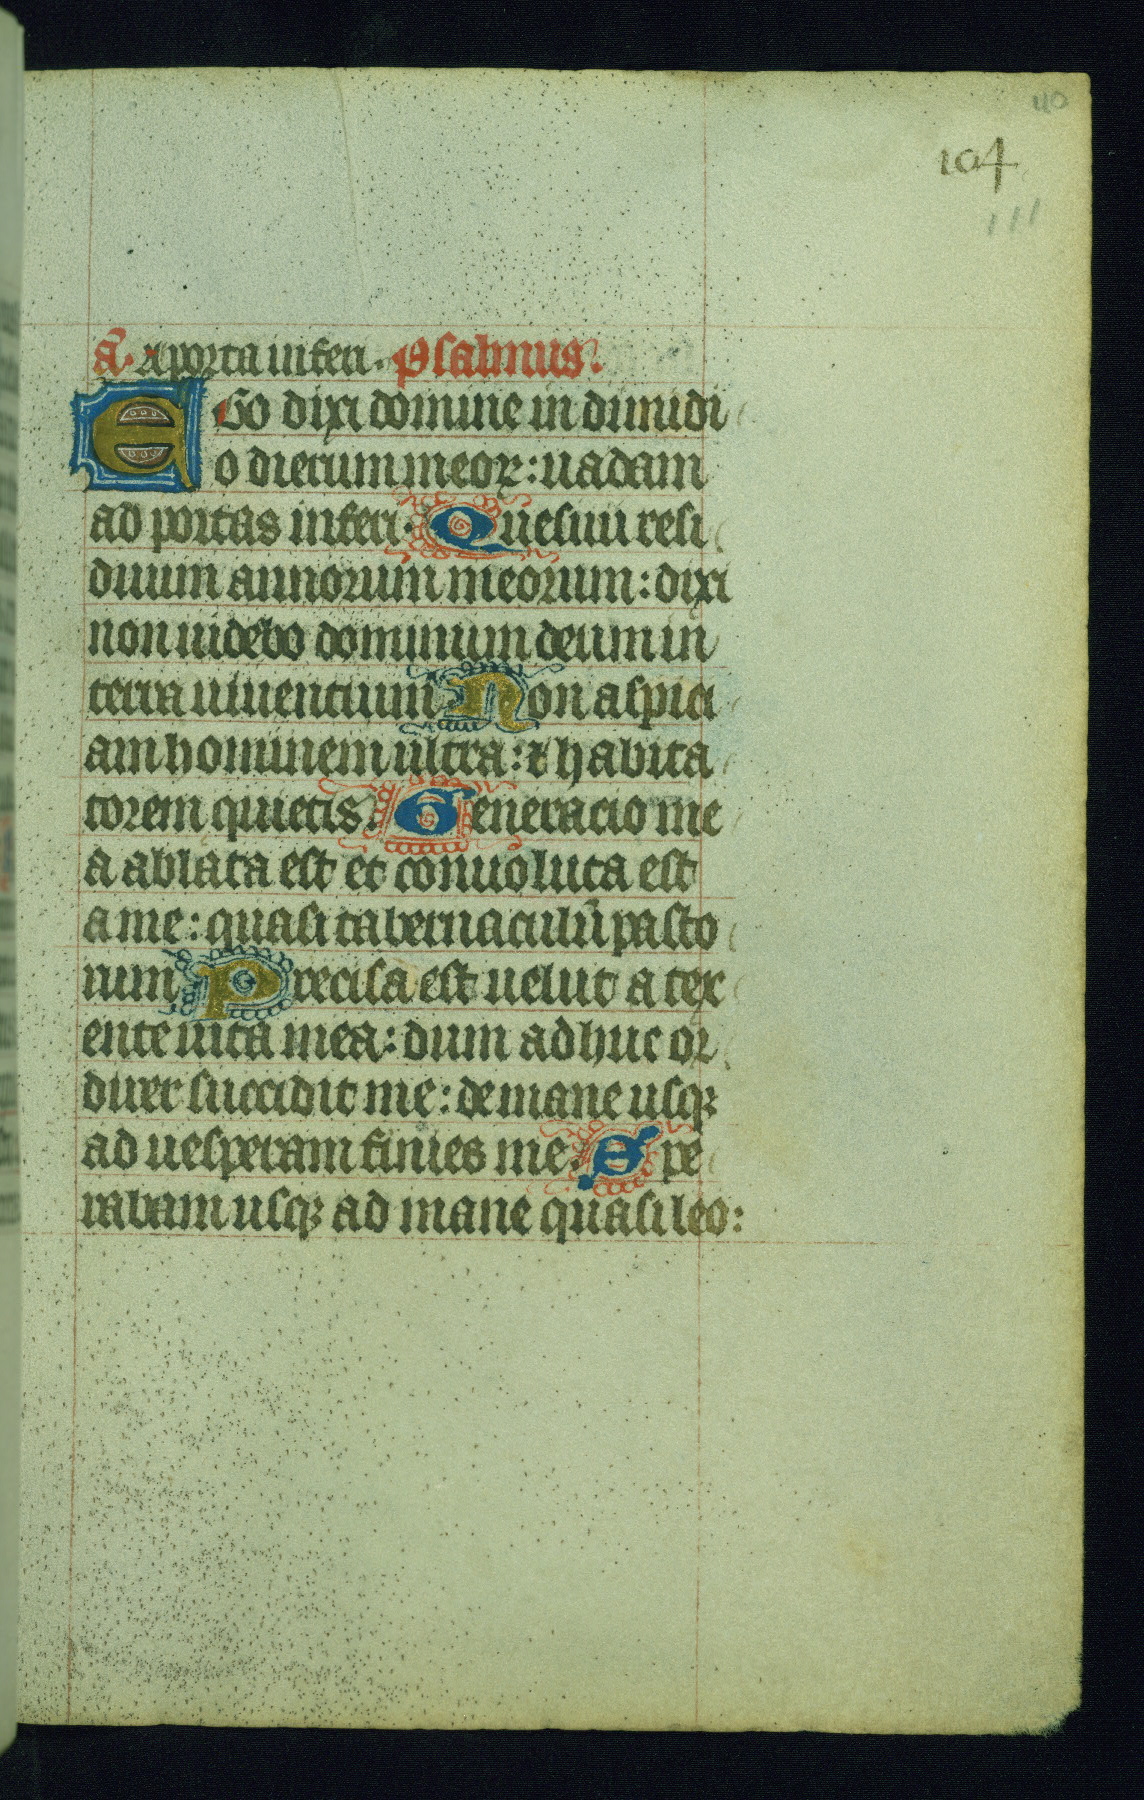 110
104
111
añ. A porta inferi. Psalmus.
EGo dixi domine in dimidi
o dierum meoꝝ: uadam
ad portas inferi. Quesiui resi
duum annorum meorum: dixi
non uidebo dominum deum in
terra uiuentium Non aspici
am hominem ultra: ⁊ habita
torem quietis. Generacio me
a ablata est et conuoluta est
a me: quasi tabernaculū pasto
rum Precisa est uelut a tex
ente uita mea: dum adhuc or
direr succidit me: de mane usqꝫ
ad uesperam finies me. Spe
rabam usqꝫ ad mane quasi leo: